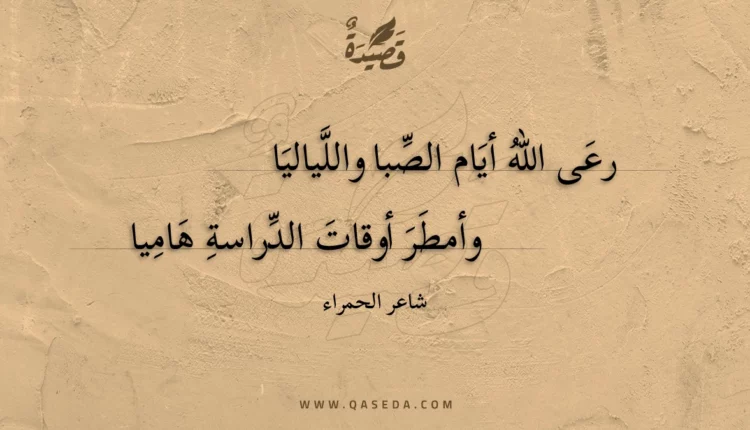 قَصِيْدَةٌ
رعَى اللهُ أيَام الصِّبا واللَّياليَا
وأمطَرَ أوقاتَ الدِّراسةِ هَامِيا
شاعر الحمراء
WWW.QASEDA.COM